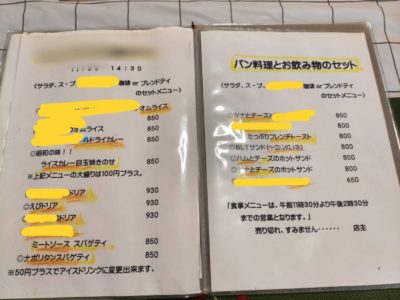 11:00 14:30
(サラダ、ス-プ、 珈琲 or ブレンドティ
のセットメニュー)
オムライス 850
オムライス 850
ドライカレー 850
◎昭和の味!!
ライスカレー目玉焼きのせ 850
※上記メニューの大盛りは100円プラス。
ドリア 930
◎えびドリア 930
ドリア 930
ミートソース スパゲティ 850
◎ナポリタンスパゲティ 850
※50円プラスでアイスドリンクに変更出来ます。
パン料理とお飲み物のセット
(サラダ、ス-プ、 珈琲 or ブレンドティ
のセットメニュー)
◎ツナとチーズと 850
たっぷりフレンチトースト 850
◎BLTサンド 800
◎ハムとチーズのホットサンド 800
◎ツナとチーズのホットサンド 800
650
「食事メニューは、午前11時30分より午後2時30分
までの営業となります。」
売り切れ、すみません······ 店主